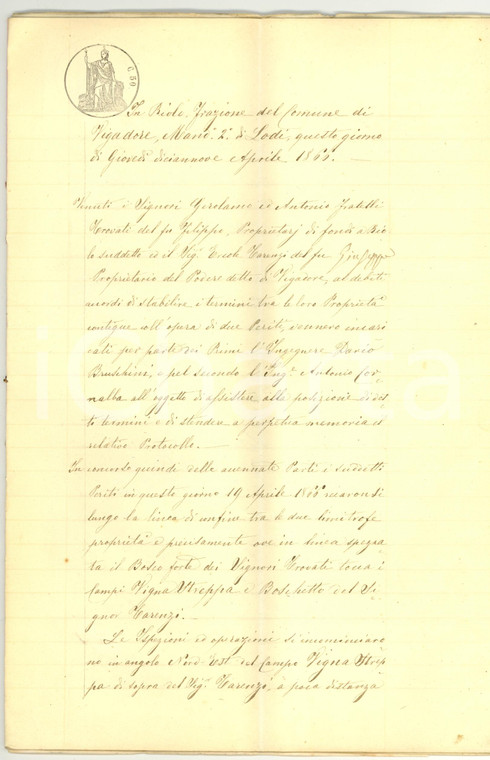 C. 50
In Riolo, Frazione del Comune di
Vigadore, Mand.º 2.º di Lodi, questo giorno
di Giovedì diciannove Aprile 1866.
Venuti i Signori Gerolamo ed Antonio fratelli
Trovati del fu Filippo, Proprietarj di fondi a Rio-
lo suddetto ed il Sig.r Ercole Varenzi del fu Giuseppe
Proprietario del Podere detto di Vigadore, ad debiti
accordi di stabilire i termini tra le loro Proprietà
contigue coll'opera di due Periti, vennero incari
cati per parte dei Primi l'Ingegnere Dario
Bruschini, e pel secondo l'Ing.e Antonio for-
nalba all'oggetto di assistere alla posizione di det
to termini e di stendere a perpetua memoria il
relativo Protocollo.
In concorso quindi delle accennate Parti i suddetti
Periti in questo giorno 19 Aprile 1866 recaronsi
lungo la linea di confine tra le due limitrofe
proprietà e precisamente ove in linea spezza
ta il Bosco forte dei Signori Trovati tocca i
Campi Vigna Streppa e Boschetto del Si-
gnor Varenzi.
Le Ispezioni ed operazioni si incominciaro
no in angolo Nord Est del Campo Vigna Strep
pa di sopra del Sig.r Varenzi, a poca distanza